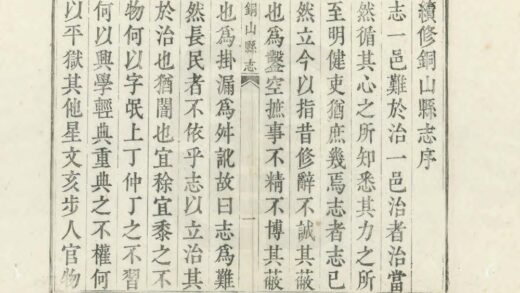 續修銅山縣志序
志一邑難於治一邑治者治當
然循其心之所知悉其力之所
至明健吏猶庶幾焉志者志已
然立今以指昔修辭不誠其蔽
也為鑿空摭事不精不博其蔽
銅山縣志
一
也為掛漏為舛訛故曰志為難
然長民者不依乎志以立治其
於治也猶闇也宜稌宜黍之不
物何以字氓上丁仲丁之不習
何以興學輕典重典之不權何
以平獄其他星文亥步人官物